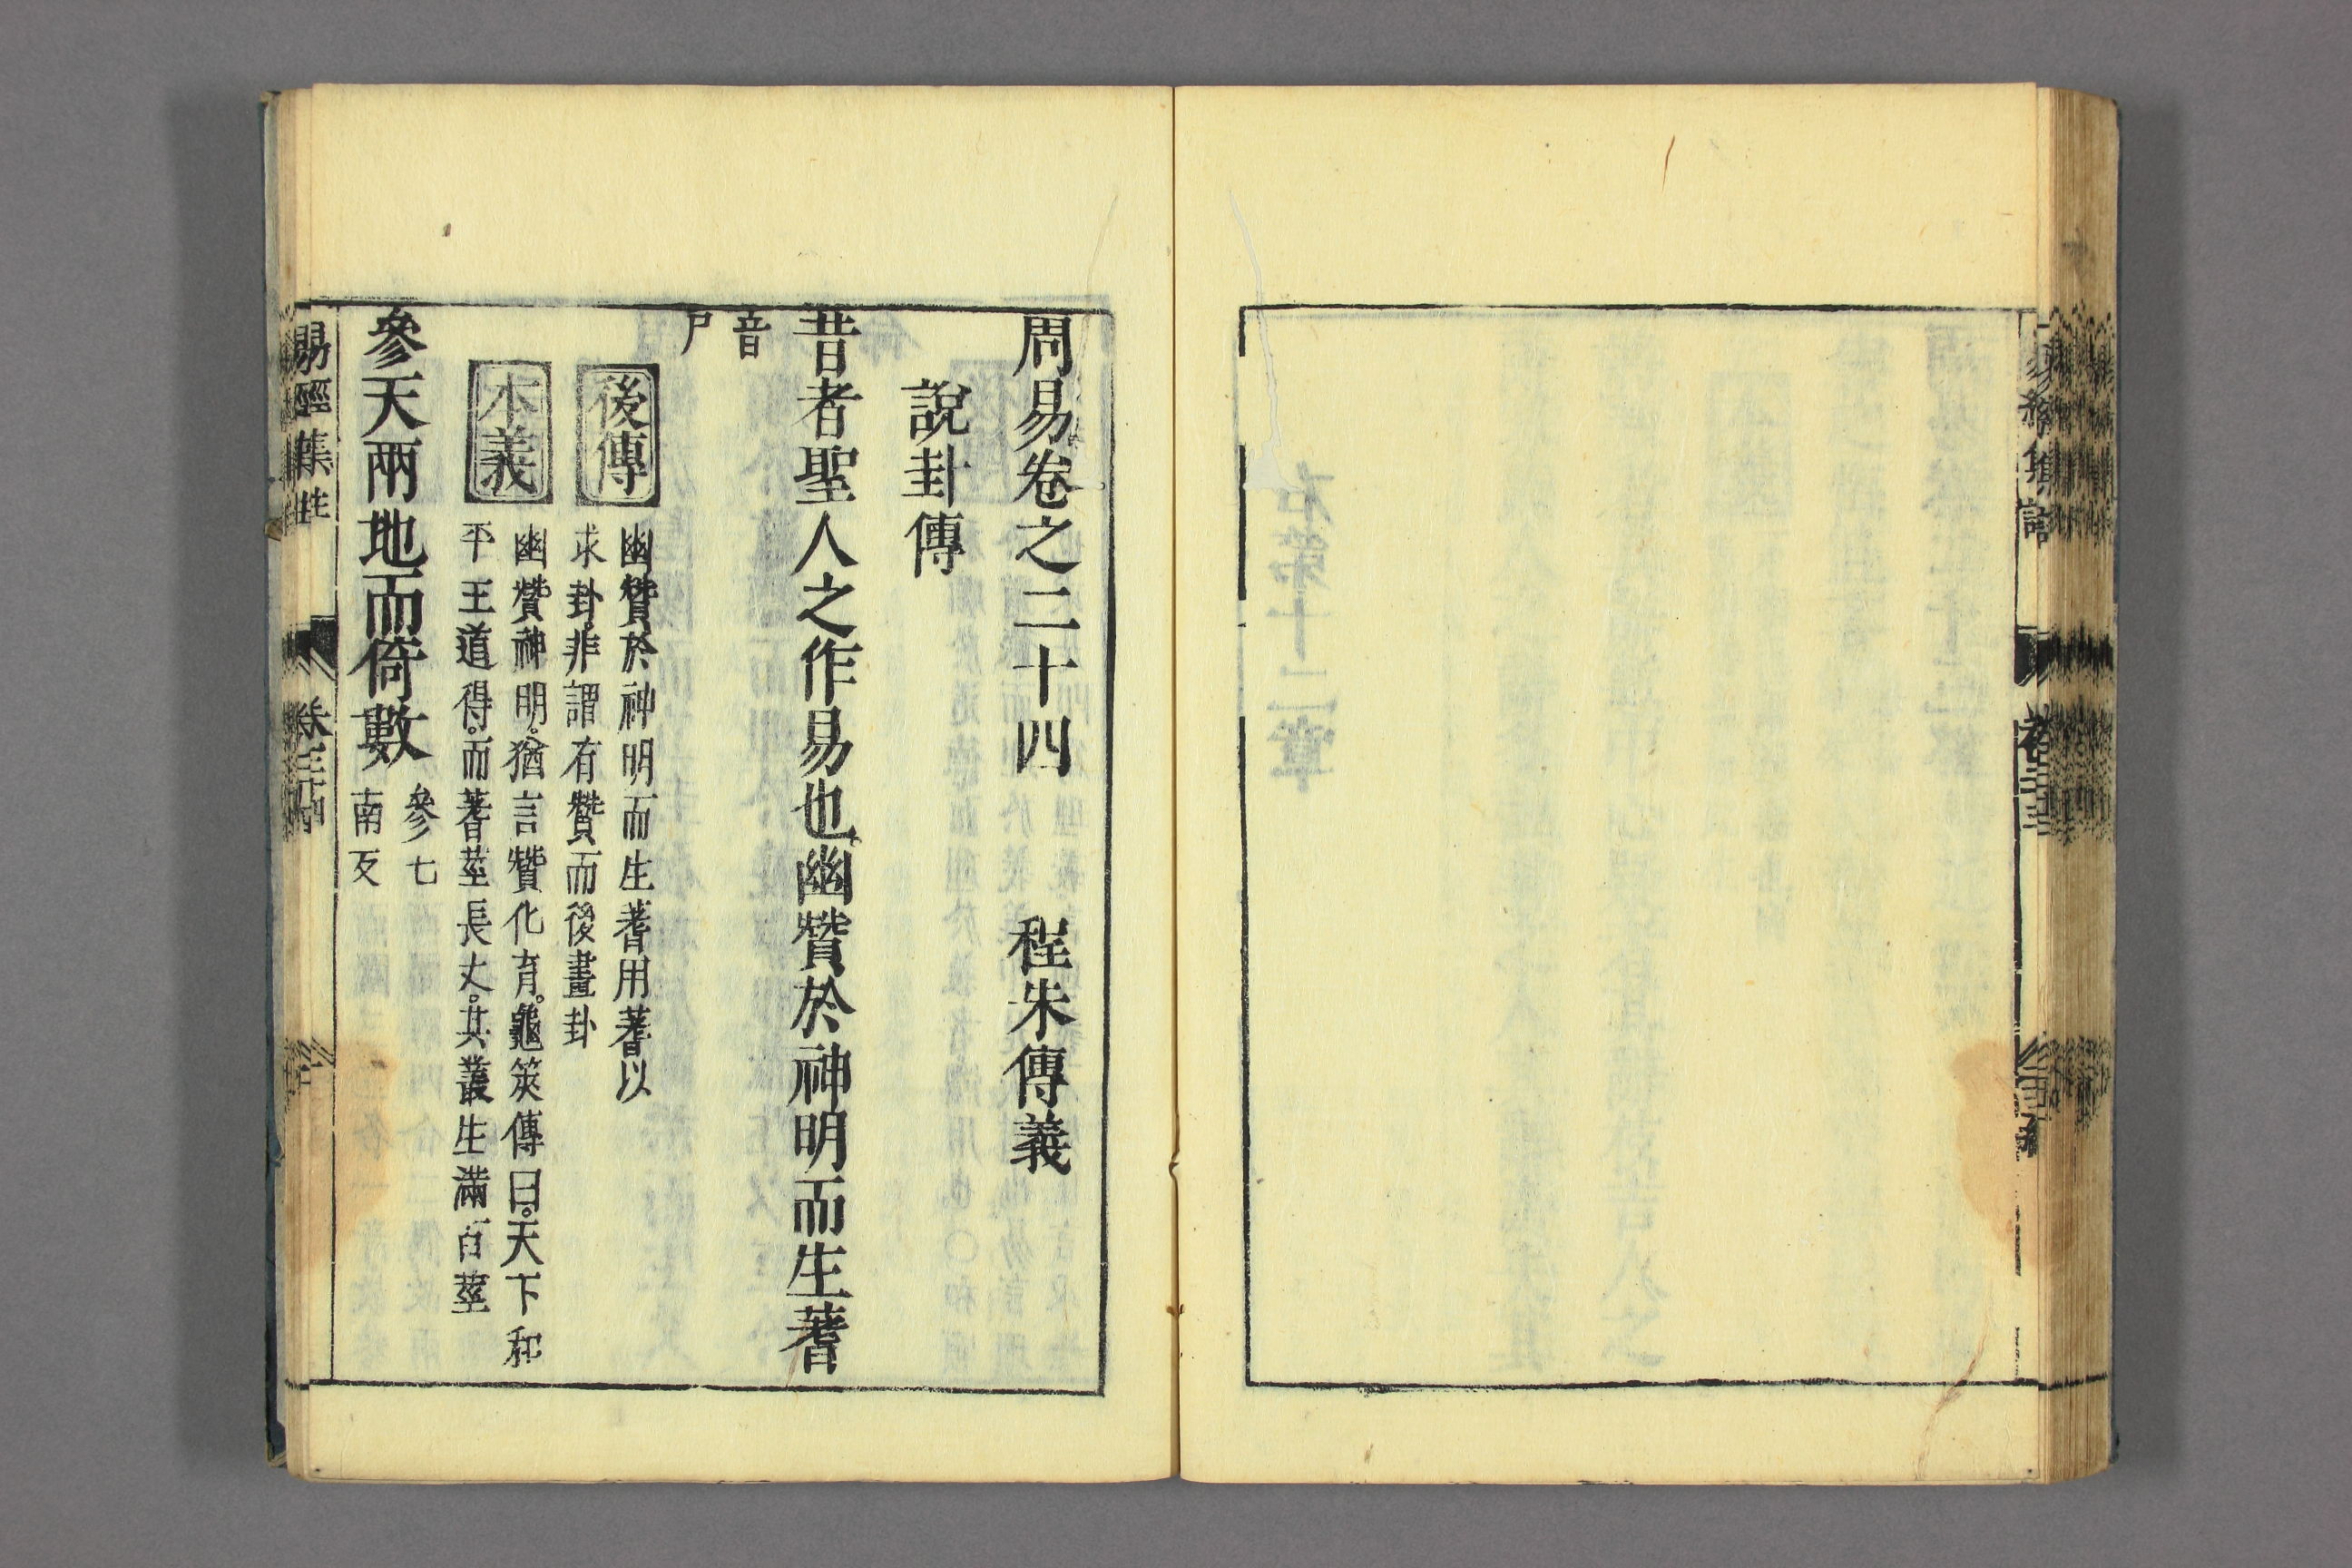 周易卷之二十四　程朱傳義
說卦傳
昔者聖人之作易也幽贊於神明而生蓍
音
尸
後傳
幽贊於神明而生蓍用蓍以
求卦非謂有贊而後畫卦
本義
幽贊神明。猶言贊化育。龜筴傳曰。天下和
平王道得。而蓍莖長丈。其叢生滿百莖
參天兩地而倚數
參七
南反
易經集註
卷二十四